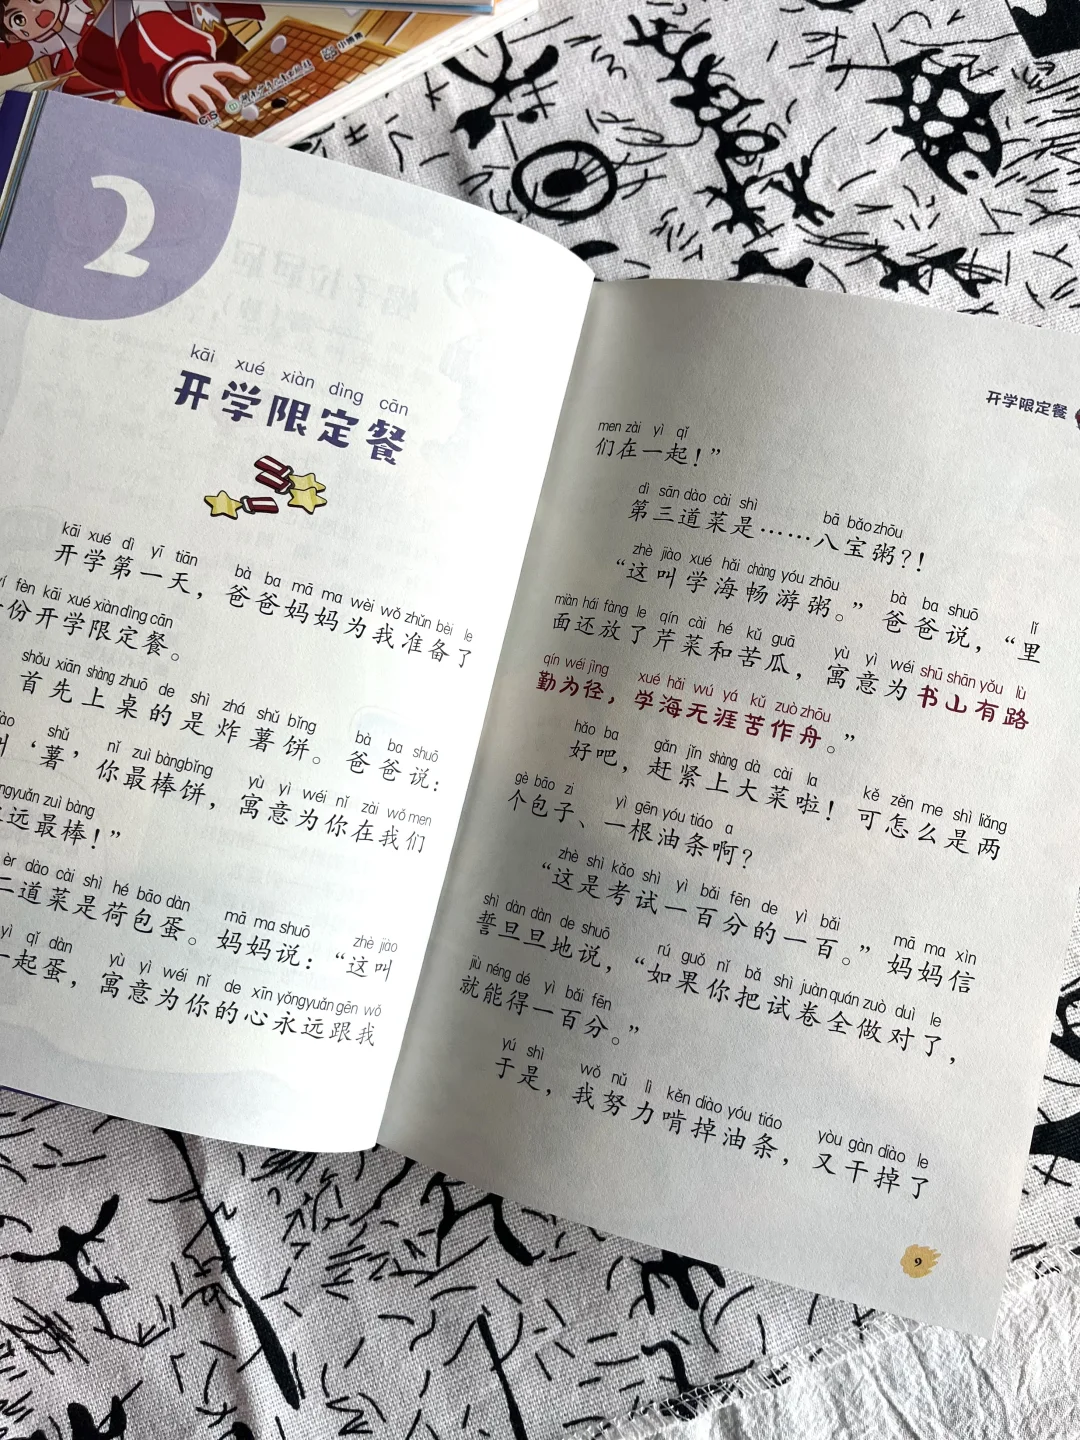 2
kāi xué xiàn dìng cān
开学限定餐
kāi xué dì yī tiān bà ba mā ma wèi wǒ zhǔn bèi le
开学第一天，爸爸妈妈为我准备了
fèn kāi xué xiàn dìng cān
份开学限定餐。
shǒu xiān shàng zhuō de shì zhá shǔ bǐng bà ba shuō
首先上桌的是炸薯饼。爸爸说：
shǔ nǐ zuì bàng bǐng yù yì wéi nǐ zài wǒ men
‘薯’你最棒饼，寓意为你在我们
yuǎn zuì bàng
远最棒！”
èr dào cài shì hé bāo dàn mā ma shuō zhè jiào
二道菜是荷包蛋。妈妈说：“这叫
yì qǐ dàn yù yì wéi nǐ de xīn yǒng yuǎn gēn wǒ
一起蛋，寓意为你的心永远跟我
开学限定餐
men zài yì qǐ
们在一起！”
dì sān dào cài shì bā bǎo zhōu
第三道菜是……八宝粥？！
zhè jiào xué hǎi chàng yóu zhōu bà ba shuō lǐ
“这叫学海畅游粥。”爸爸说，“里
miàn hái fàng le qín cài hé kǔ guā yù yì wéi shū shān yǒu lù
面还放了芹菜和苦瓜，寓意为书山有路
qín wéi jìng xué hǎi wú yá kǔ zuò zhōu
勤为径，学海无涯苦作舟。”
hǎo ba gǎn jǐn shàng dà cài la kě zěn me shì liǎng
好吧，赶紧上大菜啦！可怎么是两
gè bāo zi yì gēn yóu tiáo a
个包子、一根油条啊？
zhè shì kǎo shì yì bǎi fēn de yì bǎi mā ma xìn
“这是考试一百分的一百。”妈妈信
shì dàn dàn de shuō rú guǒ nǐ bǎ shì juàn quán zuò duì le
誓旦旦地说，“如果你把试卷全做对了，
jiù néng dé yì bǎi fēn
就能得一百分。”
yú shì wǒ nǔ lì kěn diào yóu tiáo yòu gàn diào le
于是，我努力啃掉油条，又干掉了
9